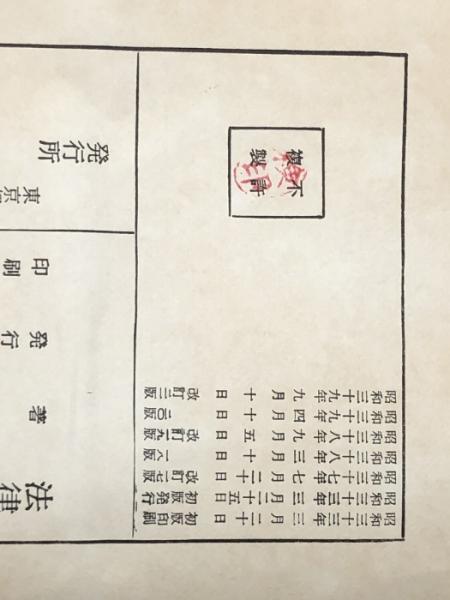 昭和三十三年三月二十日 初版印刷
昭和三十三年三月二十五日 初版発行
昭和三十七年七月二十日 改訂一七版
昭和三十八年三月十日 一八版
昭和三十八年九月五日 改訂一九版
昭和三十九年四月十日 二〇版
昭和三十九年九月十日 改訂二一版
不許
複製
検印
法律
著
発行
印刷
東京
発行所